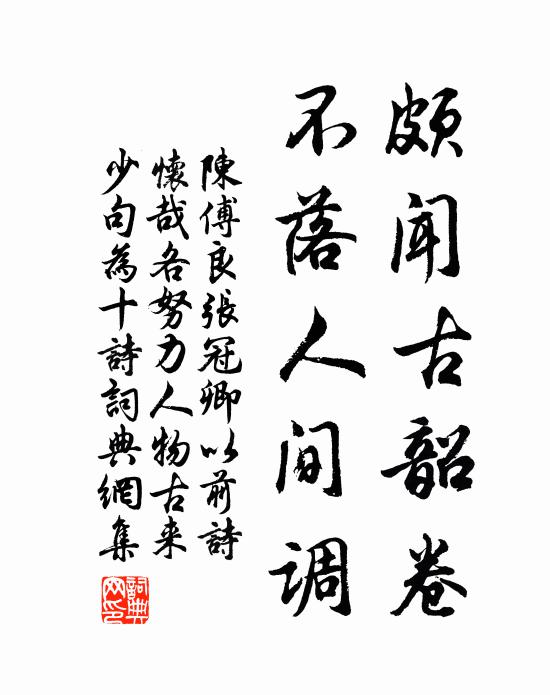 頗聞古韶卷
不落人間調
陳傅良張冠卿以前詩
懷哉各努力人物古来
少句為十詩詞典網集
詞典網印